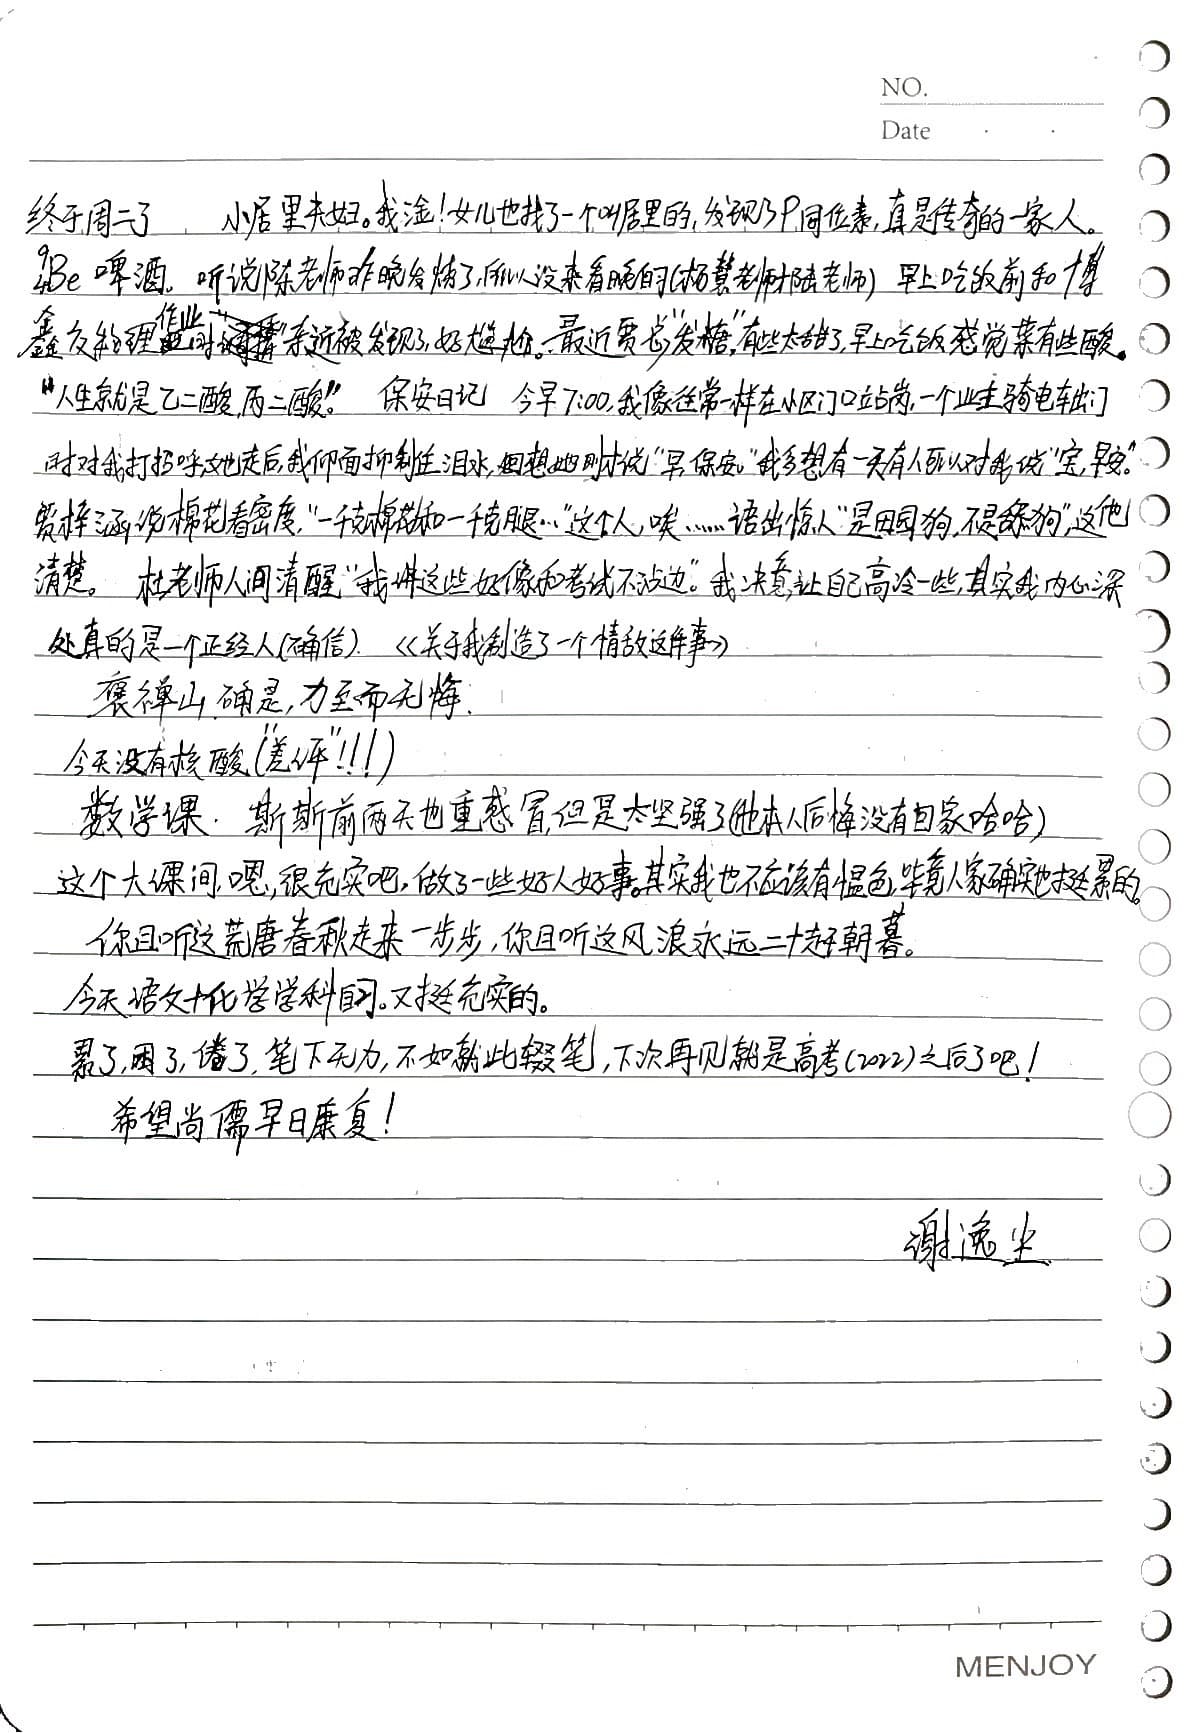 NO.
Date
终于周二了 小居里夫妇。我淦!女儿也找了一个叫居里的,发现了P同位素,真是传奇的一家人。
⁹₄Be 啤酒。听说陈老师昨晚发烧了,所以没来看晚自习(杨慧老师和陆老师) 早上吃饭前和博
鑫 物理作业时 亲近被发现了,好尴尬。最近贾总"发糖",有些太甜了,早上吃饭感觉菜有些酸。
"人生就是乙二酸,丙二酸"。 保安日记 今早7:00,我像往常一样在小区门口站岗,一个业主骑电车出门
时对我打招呼,她走后,我仰面抑制住泪水,回想她刚才说"早,保安。"我多想有一天有人可以对我说"宝,早安"。
贾梓涵说棉花看密度,"一千克棉花和一千克腿…"这个人,唉……语出惊人"是田园狗,不是舔狗",这他
清楚。 杜老师人间清醒"我讲这些好像和考试不沾边"。我决意让自己高冷一些,其实我内心深
处真的是一个正经人(确信). 《关于我制造了一个情敌这件事》
褒禅山.确是,力至而无悔.
今天没有核酸("差评"!!!)
数学课. 斯斯前两天也重感冒,但是太坚强了(他本人后悔没有回家哈哈)
这个大课间,嗯,很充实吧,做了一些好人好事。其实我也不应该有愠色,毕竟人家确实也挺累的。
你且听这荒唐春秋走来一步步,你且听这风浪永远二十赶朝暮。
今天语文+化学学科自习。又挺充实的。
累了,困了,倦了,笔下无力,不如就此辍笔,下次再见就是高考(2022)之后了吧!
希望尚儒早日康复!
谢逸尘
MENJOY